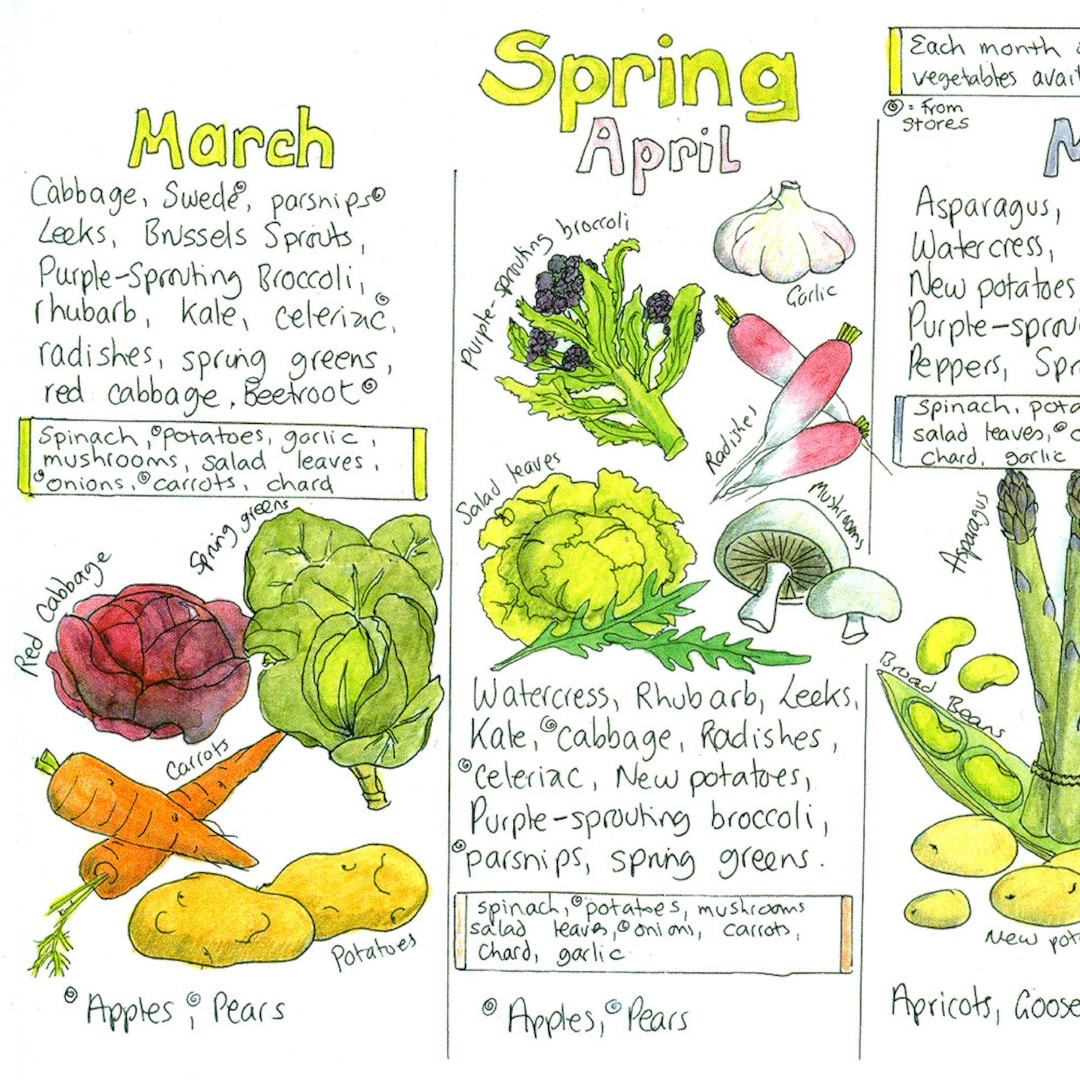 Spring
Each month
vegetables
= from
stores
March
Cabbage, Swede, parsnips
Leeks, Brussels Sprouts,
Purple-Sprouting Broccoli,
rhubarb, Kale, celeriac,
radishes, spring greens,
red cabbage, Beetroot
Spinach, potatoes, garlic,
mushrooms, salad leaves,
onions, carrots, chard
Spring greens
Red Cabbage
Carrots
Potatoes
Apples, Pears
April
Purple-sprouting broccoli
Garlic
Radishes
Salad leaves
Mushrooms
Watercress, Rhubarb, Leeks,
Kale, cabbage, Radishes,
celeriac, New potatoes,
Purple-sprouting broccoli,
parsnips, spring greens.
spinach, potatoes, mushrooms
salad leaves, onions, carrots,
Chard, garlic
Apples, Pears
M
Asparagus,
Watercress,
New potatoes
Purple-sprou
Peppers, Spr
Spinach, pota
salad leaves,
chard, garlic
Asparagus
Broad Beans
New pot
Apricots, Goose